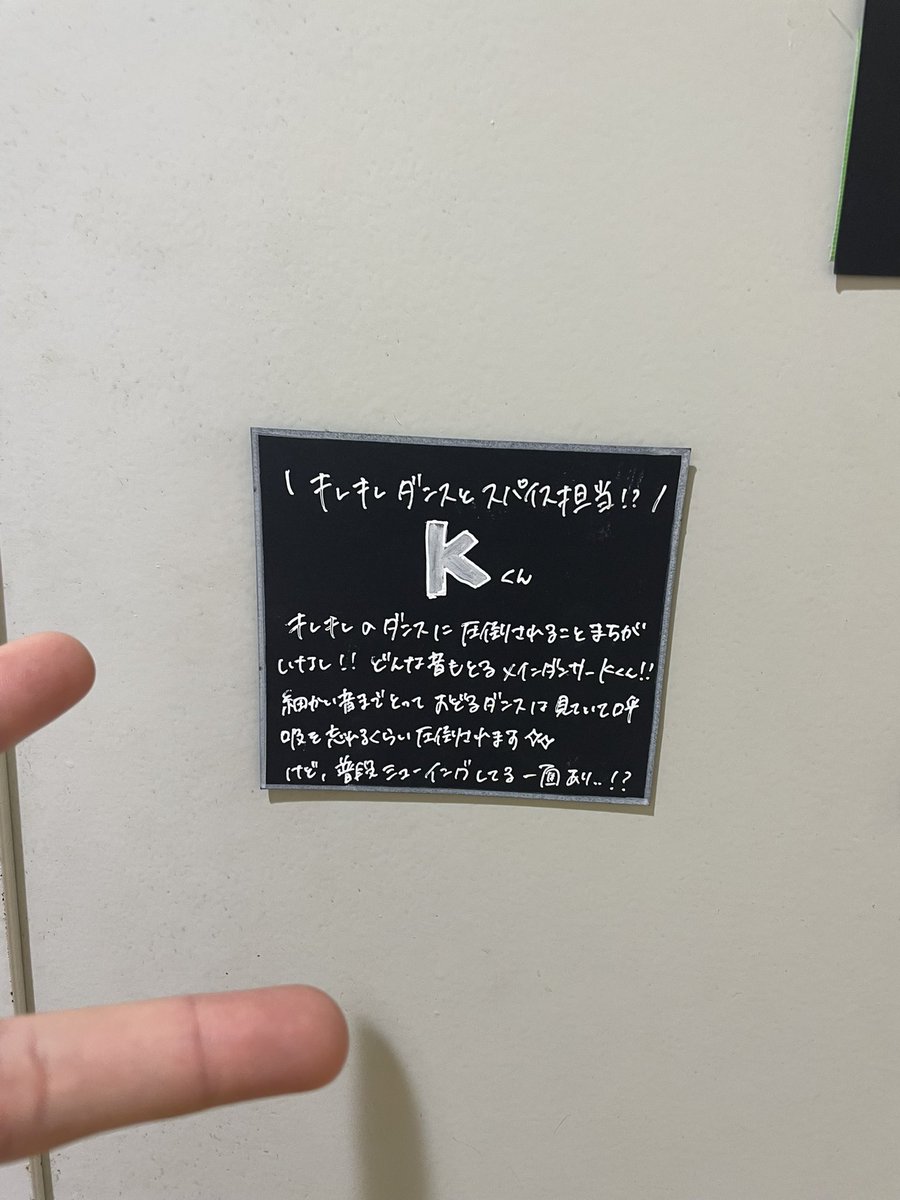 \ キレキレダンスとスパイス担当!? /
Kくん
キレキレのダンスに圧倒されることまちが
いなし!! どんな音もとるメインダンサーKくん!!
細かい音までとっておどるダンスは見ていて呼
吸を忘れるくらい圧倒されます☆☆
けど、普段シューイングしてる一面あり..!?